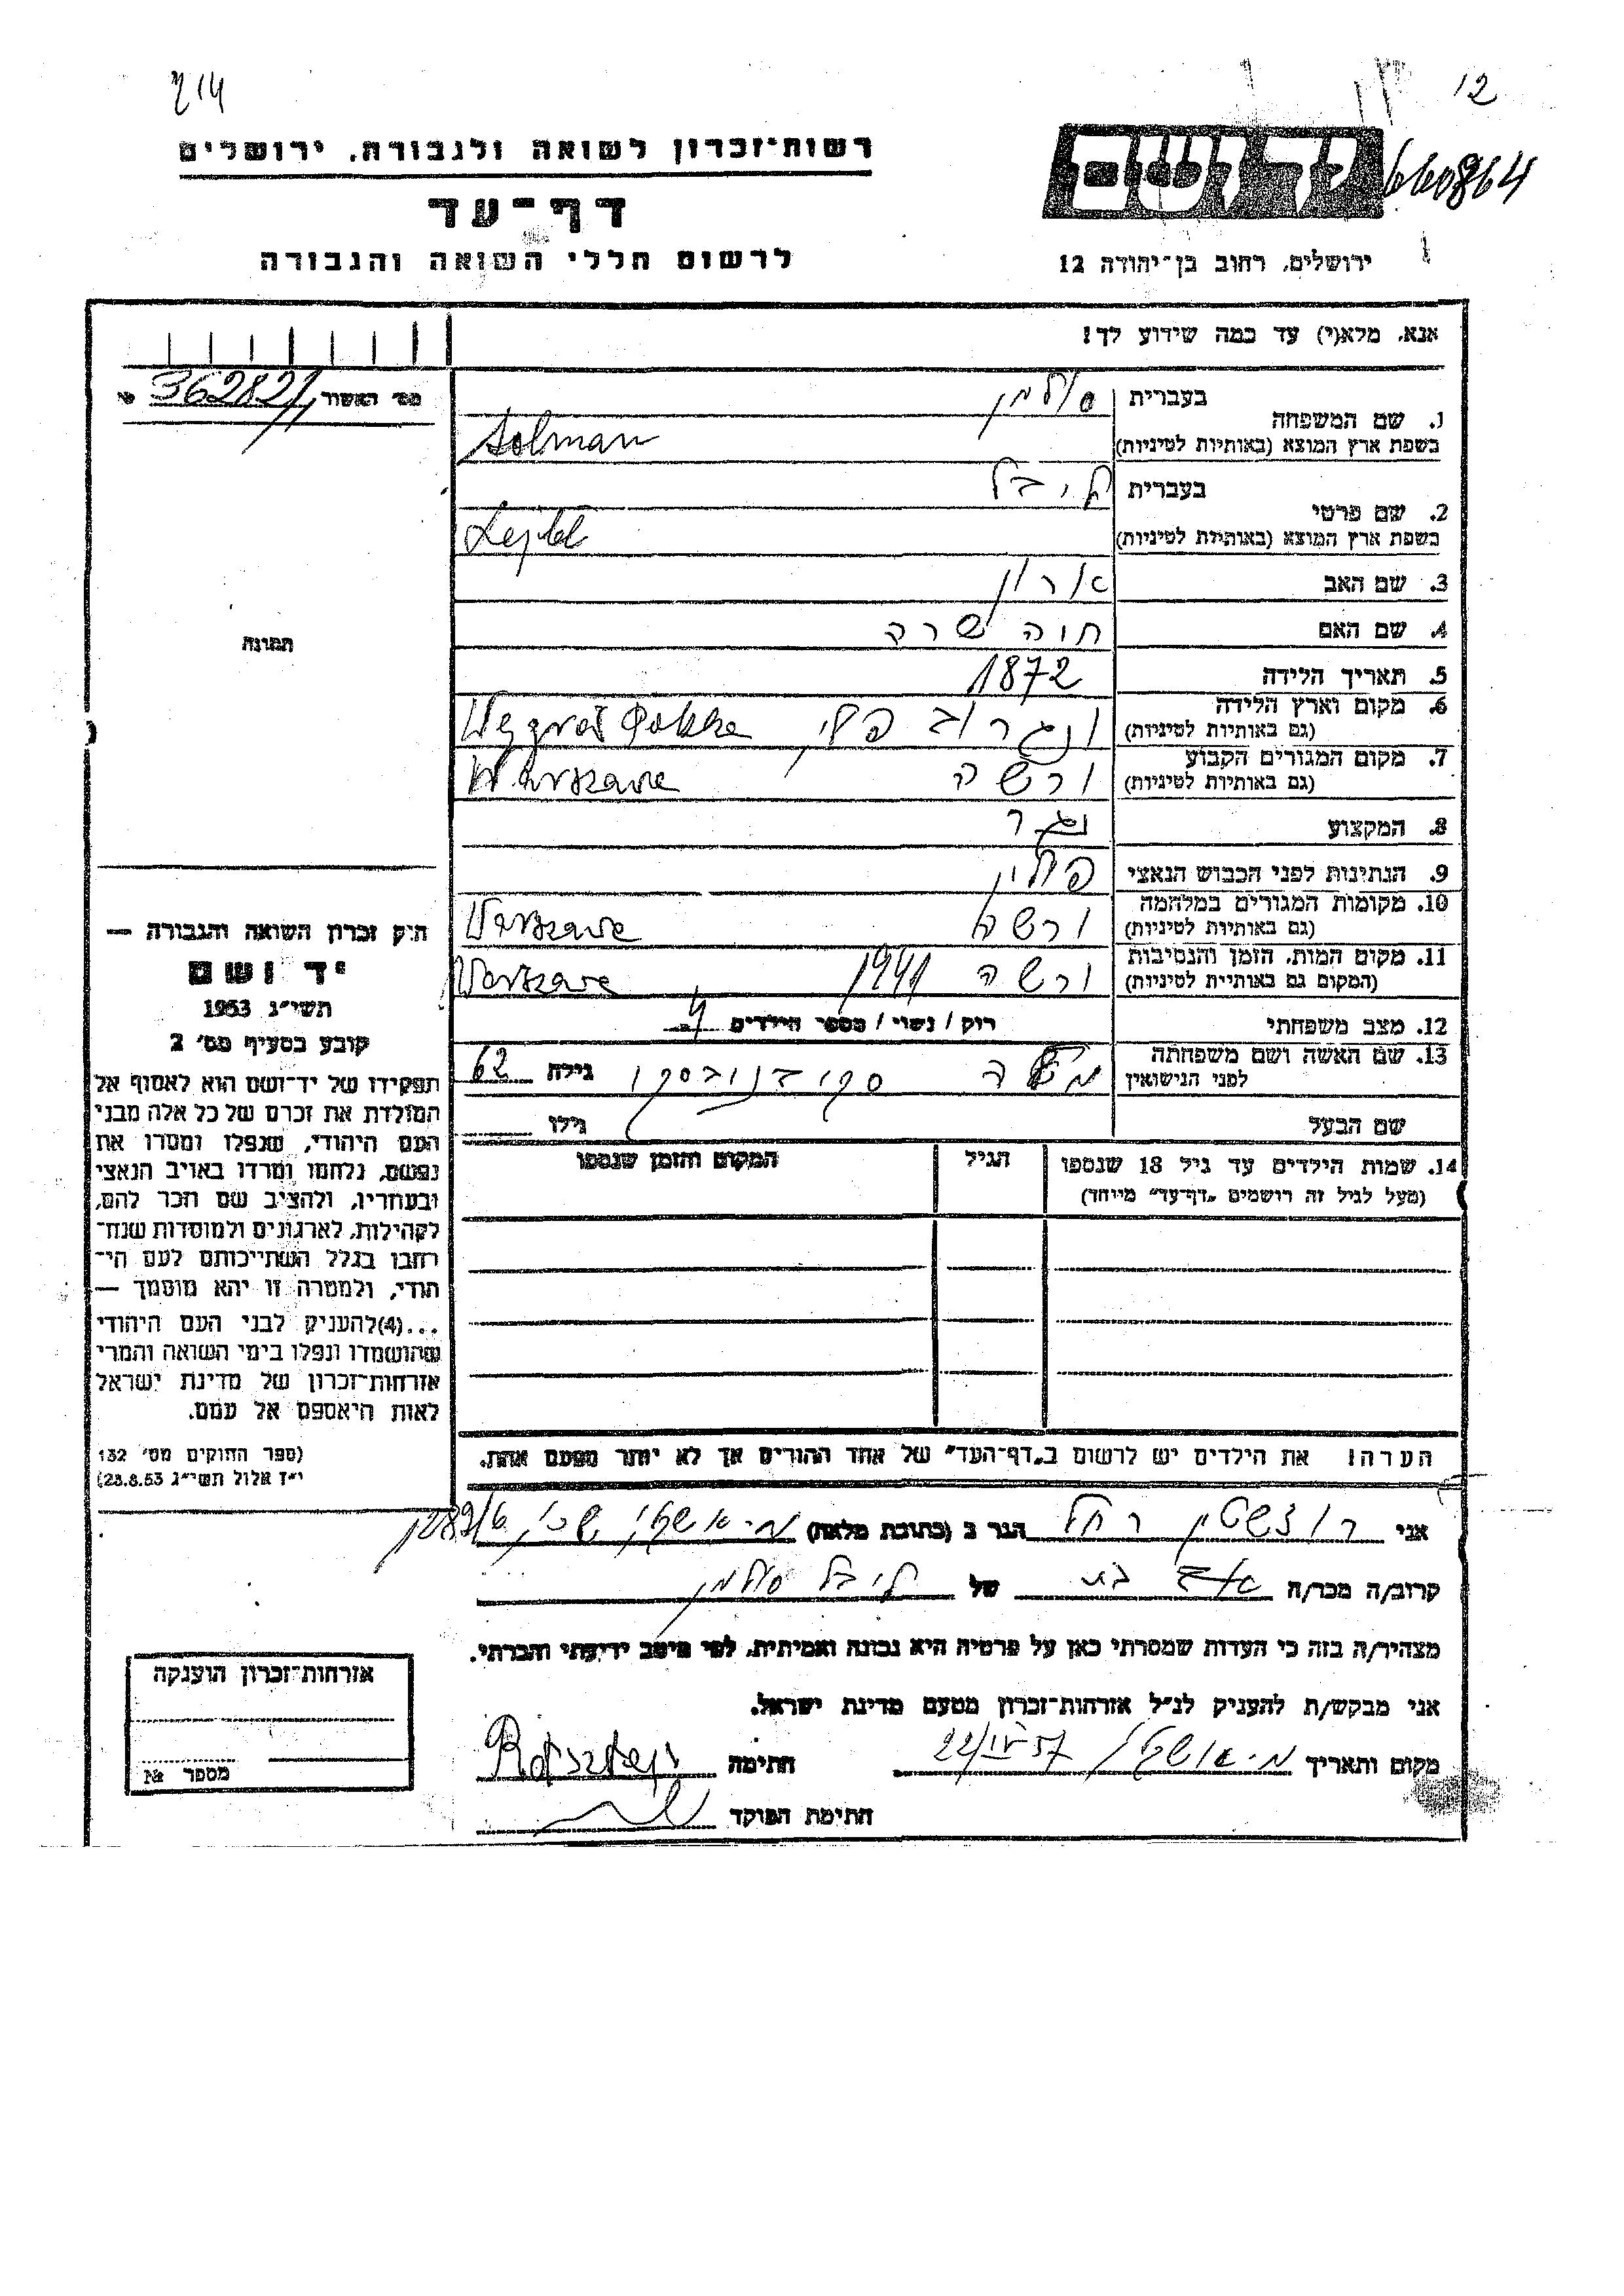 214
12
רשות־זכרון לשואה ולגבורה, ירושלים
660864
דף־עד
לרשום חללי השואה והגבורה
ירושלים, רחוב בן־יהודה 12
אנא, מלא(י) עד כמה שידוע לך!
מס׳ האשור 362821
1. שם המשפחה
בעברית סולמן
בשפת ארץ המוצא (באותיות לטיניות) Solman
2. שם פרטי
בעברית ליבל
בשפת ארץ המוצא (באותיות לטיניות) Lejbl
3. שם האב ארון
4. שם האם חוה שרה
תמונה
5. תאריך הלידה 1872
6. מקום וארץ הלידה ונגרוב פולין
(גם באותיות לטיניות)
7. מקום המגורים הקבוע ורשה Warszawa
(גם באותיות לטיניות)
8. המקצוע נגר
9. הנתינות לפני הכבוש הנאצי פולין
10. מקומות המגורים במלחמה ורשה Warszawa
(גם באותיות לטיניות)
11. מקום המות, הזמן והנסיבות ורשה 1941 Warszawa
(המקום גם באותיות לטיניות)
12. מצב משפחתי רווק / נשוי / מספר הילדים 4
13. שם האשה ושם משפחתה
לפני הנישואין גילה 62
שם הבעל גילו
14. שמות הילדים עד גיל 18 שנספו הגיל המקום והזמן שנספו
(מעל לגיל זה רושמים „דף־עד״ מייוחד)
הערה! את הילדים יש לרשום ב„דף־העד״ של אחד ההורים אך לא יותר מפעם אחת.
חוק זכרון השואה והגבורה —
יד ושם
תשי״ג 1953
קובע בסעיף מס׳ 2
תפקידו של יד־ושם הוא לאסוף אל
המולדת את זכרם של כל אלה מבני
העם היהודי, שנפלו ומסרו את
נפשם, נלחמו ומרדו באויב הנאצי
ובעוזריו, ולהציב שם וזכר להם,
לקהילות, לארגונים ולמוסדות שנח־
רבו בגלל השתייכותם לעם הי־
הודי, ולמטרה זו יהא מוסמך —
...(4)להעניק לבני העם היהודי
שהושמדו ונפלו בימי השואה והמרי
אזרחות־זכרון של מדינת ישראל
לאות היאספם אל עמם.
(ספר החוקים מס׳ 132
י״ז אלול תשי״ג 28.8.53)
אני רוטשטין רחל הגר ב (כתובת מלאה)
קרוב/ה מכר/ה בת של ליבל סולמן
מצהיר/ה בזה כי העדות שמסרתי כאן על פרטיה היא נכונה ואמיתית, לפי מיטב ידיעתי והכרתי.
אני מבקש/ת להעניק לנ״ל אזרחות־זכרון מטעם מדינת ישראל.
מקום ותאריך 22/IV 57 חתימה Rotsztejn
חתימת הפוקד
אזרחות־זכרון הוענקה
מספר №